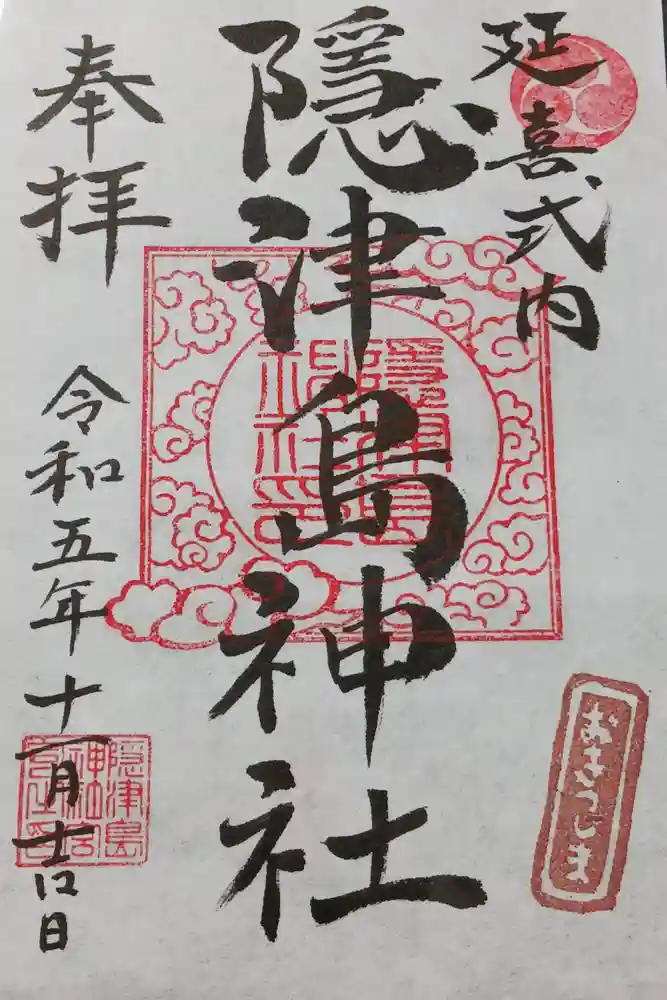 延喜式内
隠津島神社
隠津島
神社印
おきつしま
奉拝
令和五年十一月吉日
隠津島
神社宮
司之印